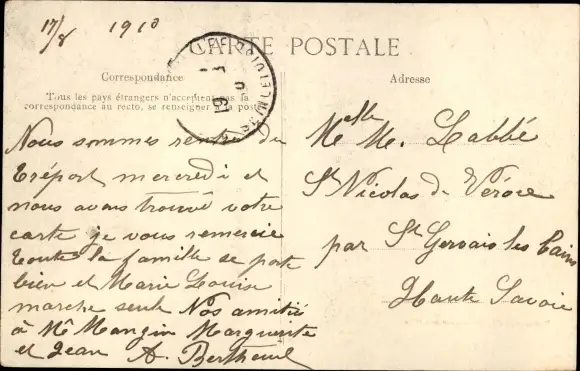 17/8 1910
CARTE POSTALE
Correspondance
Tous les pays étrangers n'acceptent pas la
correspondance au recto, se renseigner à la poste
Nous sommes rentré du
Tréport mercredi et
nous avons trouvé votre
carte je vous remercie
toute la famille se porte
bien et Marie Louise
marche seule Nos amitié
à Mr Mangin Marguerite
et Jean A. Bertheuil
Adresse
Melle M. Labbé
St Nicolas de Véroce
par St Gervais les bains
Haute Savoie